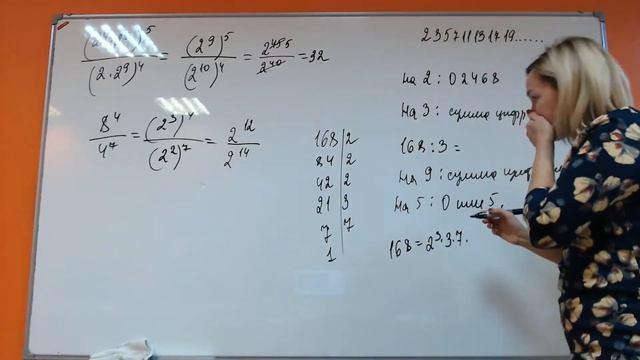 (2⁹)⁵ / (2 · 2⁹)⁴ = (2⁹)⁵ / (2¹⁰)⁴ = 2⁴⁵ ⁵ / 2⁴⁰ = 32
8⁴ / 4⁷ = (2³)⁴ / (2²)⁷ = 2¹² / 2¹⁴
168 | 2
84 | 2
42 | 2
21 | 3
7 | 7
1
2 3 5 7 11 13 17 19......
На 2 : 0 2 4 6 8
На 3 : сумма цифр
168 : 3 =
На 9 : сумма
На 5 : 0 или 5.
168 = 2³·3·7.